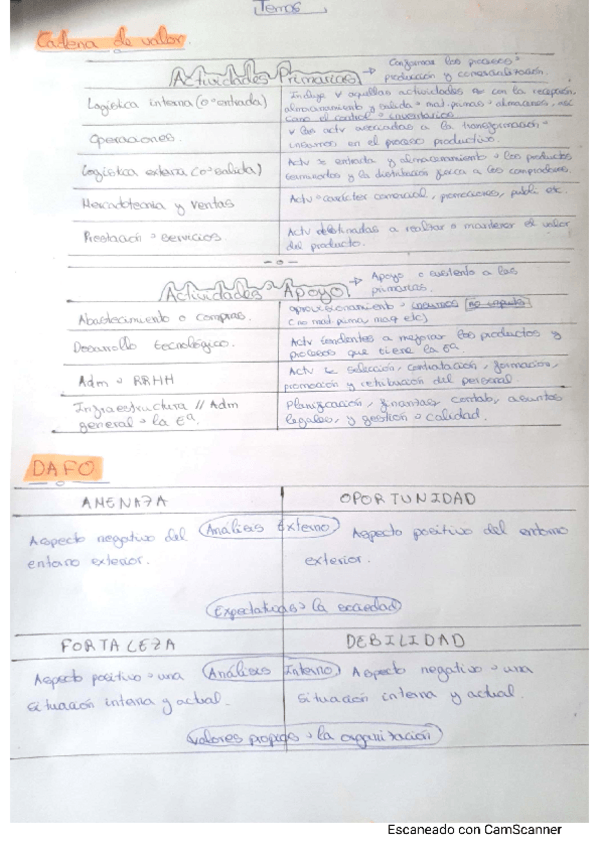 Temas
Cadena de valor.
Actividades Primarias → Conforman los procesos
producción y comercialización.
Logística interna (o entrada)
Incluye aquellas actividades con la recepción,
almacenamiento y salida mat. primas almacenes, así
como el control inventarios
Operaciones.
las actv a la transformación
en el proceso productivo.
Logística externa (o salida)
Actv entrada y almacenamiento los productos
terminados y la distribución física a los compradores.
Mercadotecnia y ventas
Actv carácter comercial, promociones, publi etc.
Prestación servicios
Actv destinadas a realzar o mantener el valor
del producto.
Actividades Apoyo → Apoyo o sustento a las
primarias.
Abastecimiento o compras.
aprovisionamiento insumos
(no mat. prima, maq etc)
Desarrollo tecnológico.
Actv tendentes a mejorar los productos y
procesos que tiene la Eª
Adm RRHH
Actv selección, contratación, formación,
promoción y retribución del personal
Infraestructura // Adm
general la Eª.
Planificación, finanzas contab, asuntos
legales, y gestión calidad.
DAFO
AMENAZA
OPORTUNIDAD
Análisis Externo
Aspecto negativo del
entorno exterior.
Aspecto positivo del entorno
exterior.
Expectativas la sociedad
FORTALEZA
DEBILIDAD
Análisis Interno
Aspecto positivo una
situación interna y actual.
Aspecto negativo una
situación interna y actual.
valores propios la organización
Escaneado con CamScanner